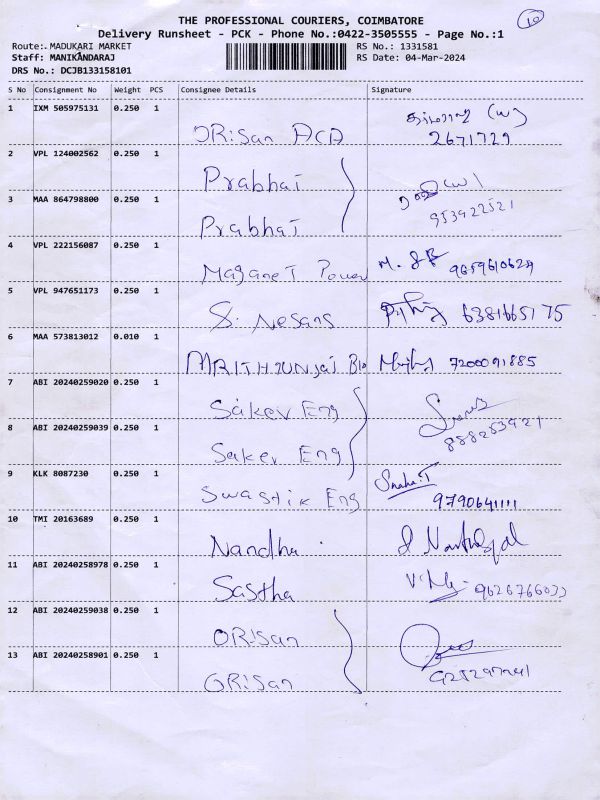 10
THE PROFESSIONAL COURIERS, COIMBATORE
Delivery Runsheet - PCK - Phone No.:0422-3505555 - Page No.:1
Route: MADUKARI MARKET RS No.: 1331581
Staff: MANIKANDARAJ RS Date: 04-Mar-2024
DRS No.: DCJB133158101
S No Consignment No Weight PCS Consignee Details Signature
1 IXM 505975131 0.250 1
ORiSan ACA 2671729
2 VPL 124002562 0.250 1
Prabhai
3 MAA 864798800 0.250 1
Prabhai 953922521
4 VPL 222156087 0.250 1
Maganet Power 9659610629
5 VPL 947651173 0.250 1
S. Nesans 6381665175
6 MAA 573813012 0.010 1
MRITHJUNjai Bio 7200091885
7 ABI 20240259020 0.250 1
Sakev Eng
8 ABI 20240259039 0.250 1
Sakev Eng 888253921
9 KLK 8087230 0.250 1
Swastik Eng Sneha.T 9790641111
10 TMI 20163689 0.250 1
Nandha
11 ABI 20240258978 0.250 1
Sastha
12 ABI 20240259038 0.250 1
ORiSan
13 ABI 20240258901 0.250 1
ORiSan